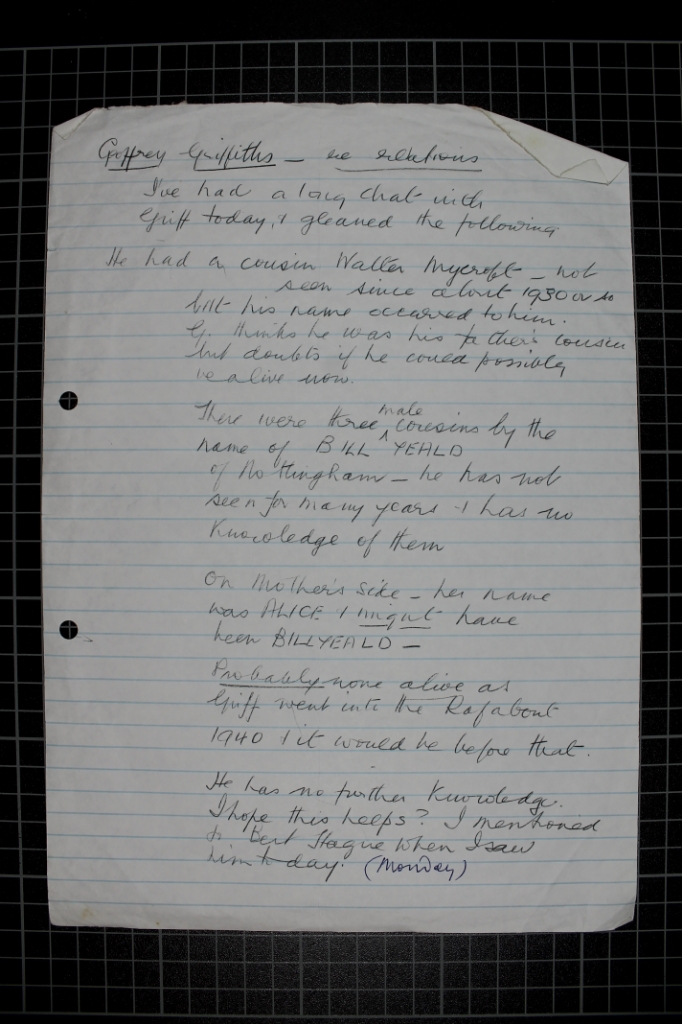 Geoffrey Griffiths – re relations
I've had a long chat with
Griff today, & gleaned the following
He had a cousin Walter Mycroft – not
seen since about 1930 or so
but his name occurred to him.
G. thinks he was his father's cousin
but doubts if he could possibly
be alive now.
male
There were three cousins by the
name of BILL YEALD
of Nottingham – he has not
seen for many years & has no
Knowledge of them
On Mother's side – her name
was ALICE & might have
been BILLYEALD –
Probably none alive as
Griff went into the Raf about
1940 & it would be before that.
He has no further Knowledge.
I hope this helps? I mentioned
to Bert Hague when I saw
him today. (Monday)